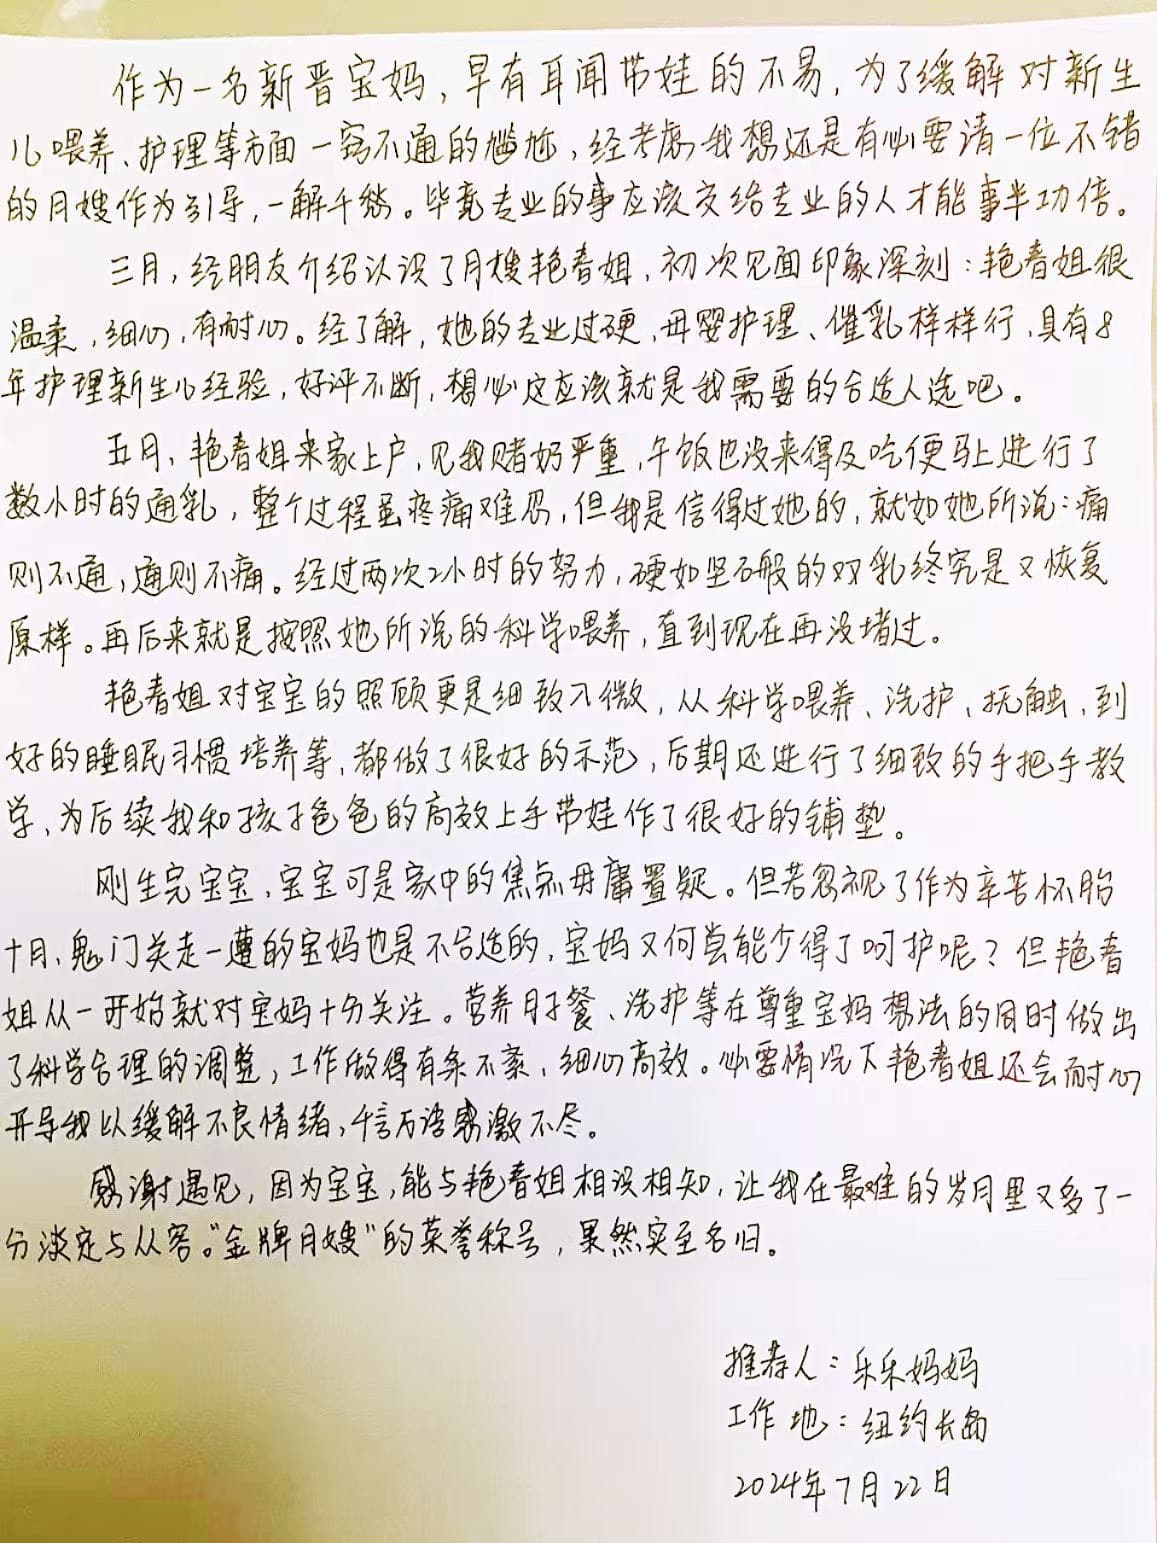 作为一名新晋宝妈，早有耳闻带娃的不易，为了缓解对新生
儿喂养、护理等方面一窍不通的尴尬，经考虑我想还是有必要请一位不错
的月嫂作为引导，一解千愁。毕竟专业的事应该交给专业的人才能事半功倍。
三月，经朋友介绍认识了月嫂艳春姐，初次见面印象深刻：艳春姐很
温柔，细心，有耐心。经了解，她的专业过硬，母婴护理、催乳样样行，具有8
年护理新生儿经验，好评不断，想必这应该就是我需要的合适人选吧。
五月，艳春姐来家上户，见我赌奶严重，午饭也没来得及吃便马上进行了
数小时的通乳，整个过程虽疼痛难忍，但我是信得过她的，就如她所说：痛
则不通，通则不痛。经过两次2小时的努力，硬如坚石般的双乳终究是又恢复
原样。再后来就是按照她所说的科学喂养，直到现在再没堵过。
艳春姐对宝宝的照顾更是细致入微，从科学喂养、洗护、抚触，到
好的睡眠习惯培养等，都做了很好的示范，后期还进行了细致的手把手教
学，为后续我和孩子爸爸的高效上手带娃作了很好的铺垫。
刚生完宝宝，宝宝可是家中的焦点毋庸置疑。但若忽视了作为辛苦怀胎
十月、鬼门关走一遭的宝妈也是不合适的，宝妈又何尝能少得了呵护呢？但艳春
姐从一开始就对宝妈十分关注。营养月子餐、洗护等在尊重宝妈想法的同时做出
了科学合理的调整，工作做得有条不紊、细心高效。必要情况下艳春姐还会耐心
开导我以缓解不良情绪，千言万语感激不尽。
感谢遇见，因为宝宝，能与艳春姐相识相知，让我在最难的岁月里又多了一
分淡定与从容。“金牌月嫂”的荣誉称号，果然实至名归。
推荐人：乐乐妈妈
工作地：纽约长岛
2024年7月22日